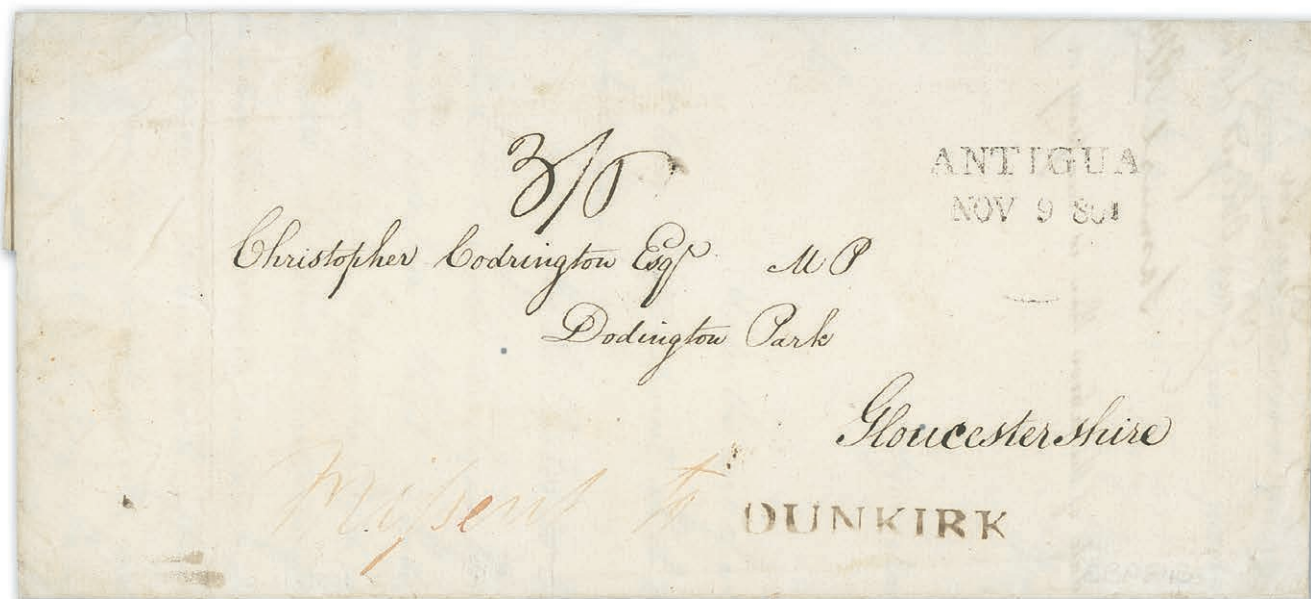 3/
ANTIGUA
NOV 9 801
Christopher Codrington Esqr M P
Dodington Park
Gloucestershire
Missent to DUNKIRK